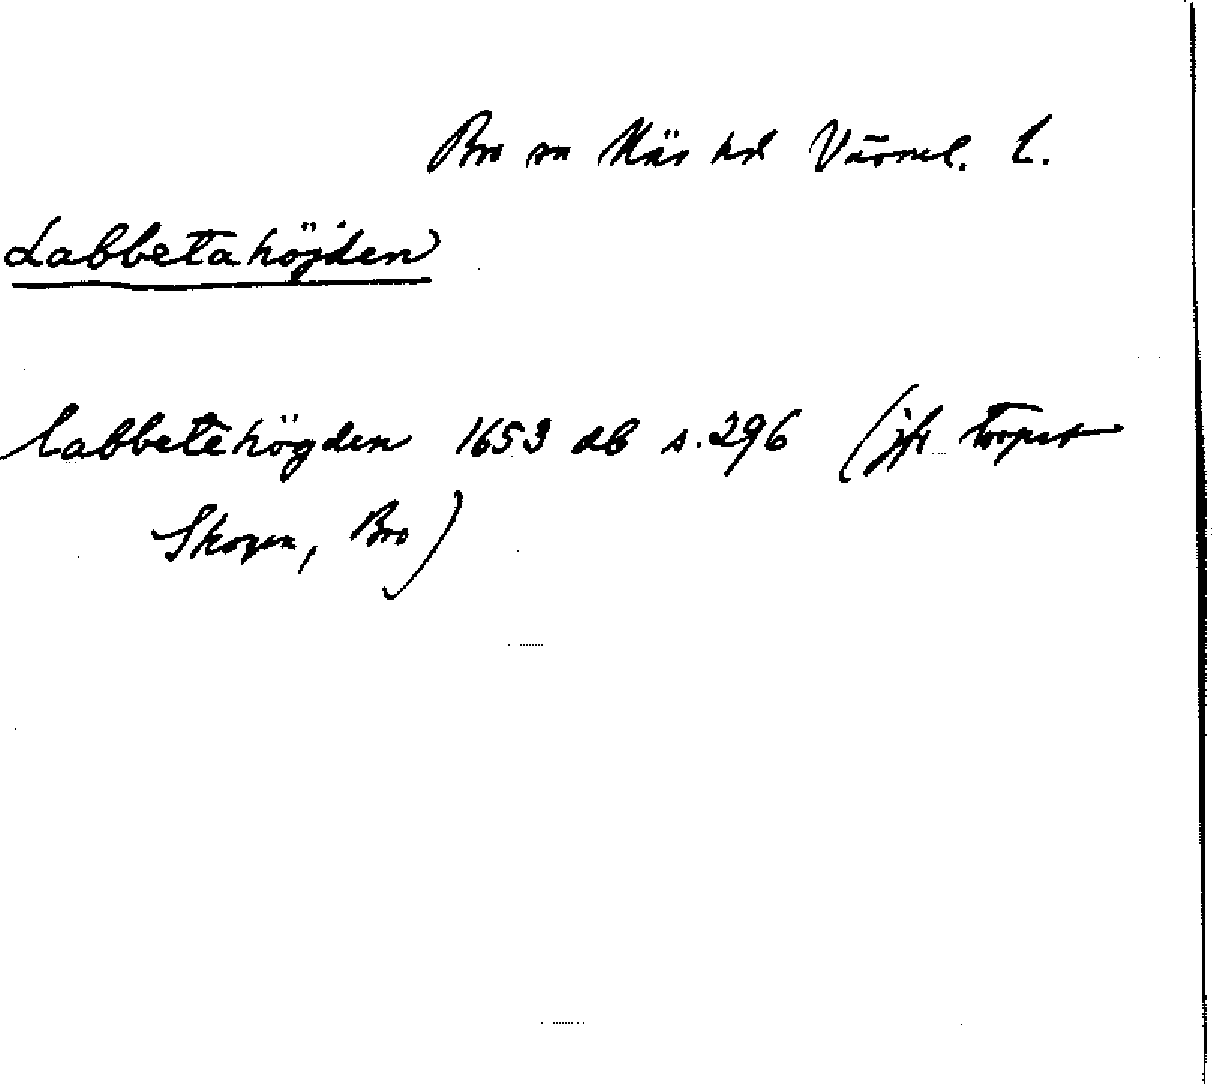 Bro sn Näs hd Värml. l.
Labbetahöjden
labbetehögden 1653 db s. 296 (jfr torpet
Skogen, Bro)